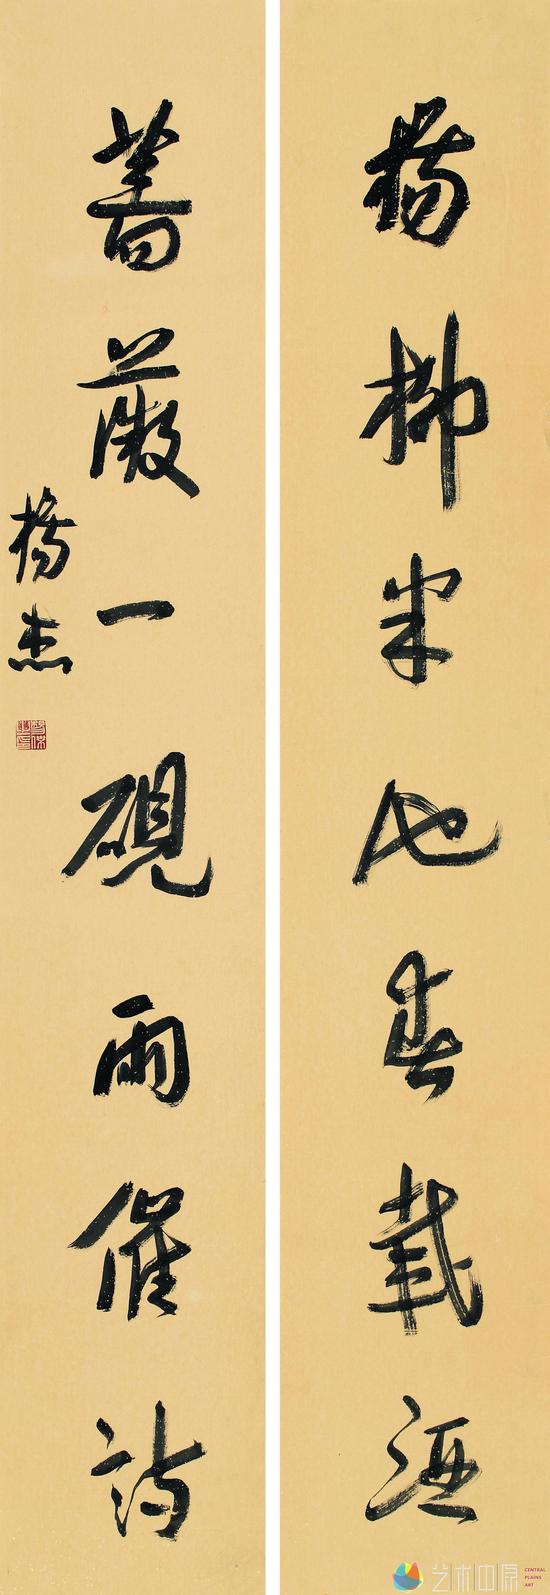 楊柳半池春載酒
薔薇一硯雨催詩
楊杰
艺术中原
CENTRAL
PLAINS
ART